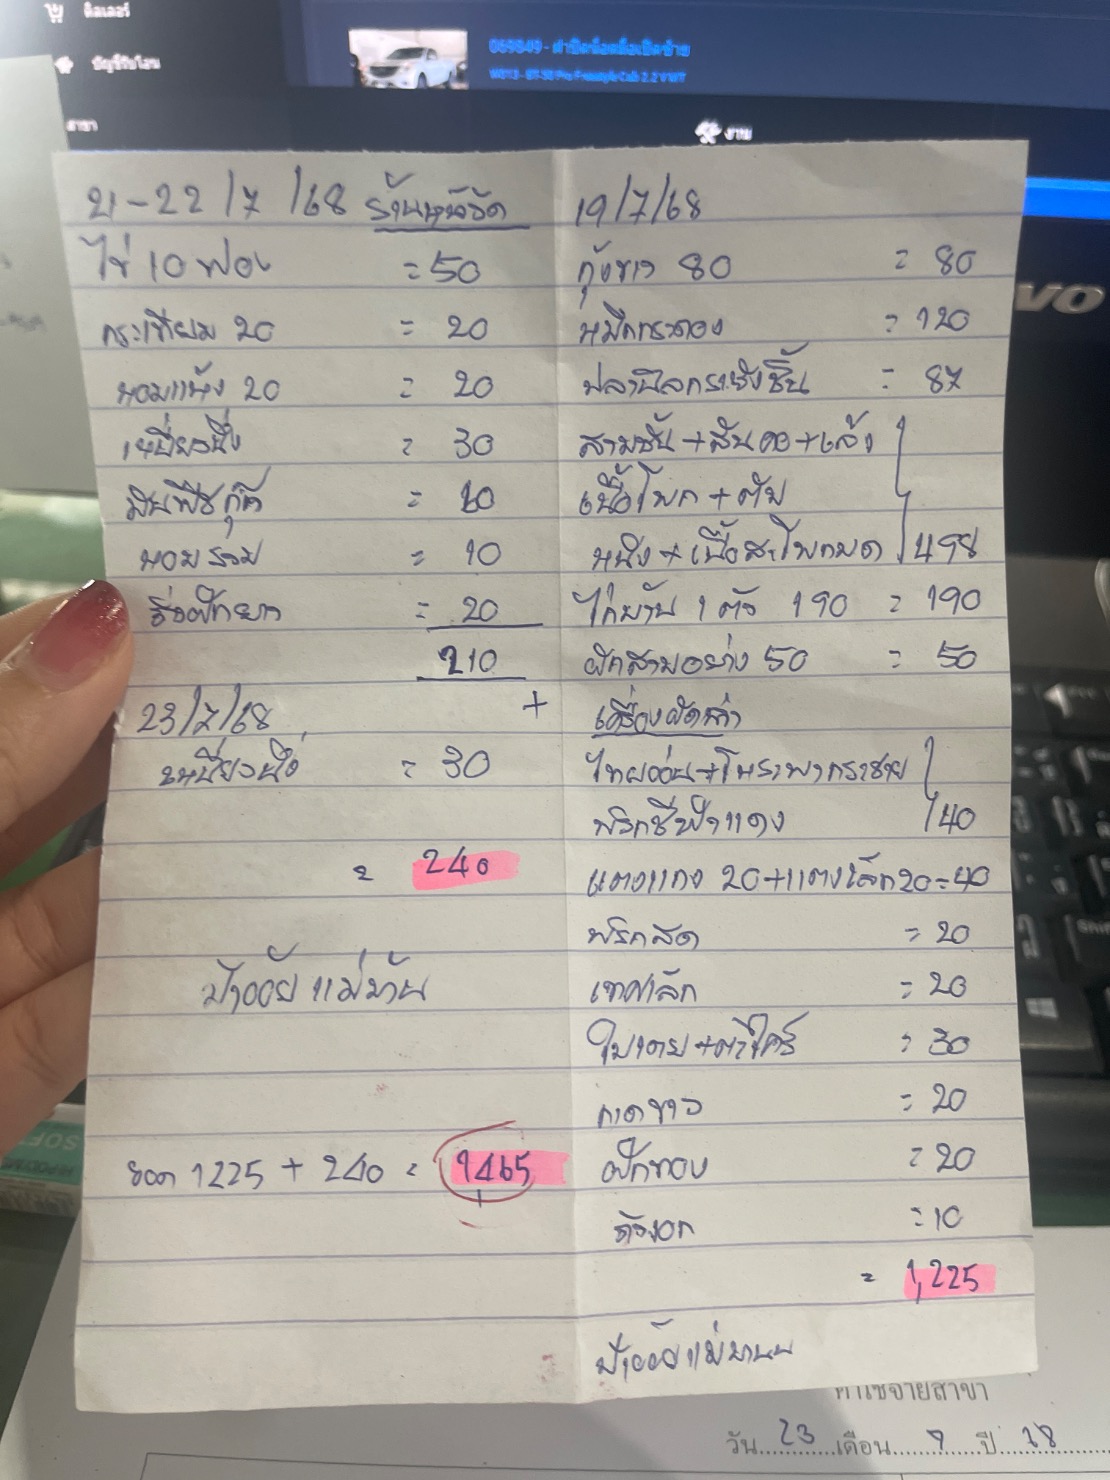 ดีลเลอร์
บัญชีรับโอน
สาขา
069849 - ฝาปิดล้อคล้อเบิดซ้าย
BT-50 Pro Freestyle Cab 2.2 V MT
งาน
VO
21-22/7/68
ไข่ 10 ฟอง = 50
กระเทียม 20 = 20
หอมแห้ง 20 = 20
เหนียวนึ่ง = 30
= 10
หอมรวม = 10
ถั่วฝักยาว = 20
210
+
23/7/68
เหนียวนึ่ง = 30
= 240
ป้าอ้อย แม่บ้าน
ยอด 1225 + 240 = 1465
19/7/68
กุ้งขาว 80 = 80
หมึกกระดอง = 120
ปลานิลกระชังชิ้น = 87
สามชั้น+สันคอ+
เนื้อโบก+ตับ
หนัง+เนื้อสะโพกบด 498
ไก่บ้าน 1 ตัว 190 = 190
ผักสามอย่าง 50 = 50
เครื่องผัดฉ่า
ไทยอ่อน+โหระพากระชาย
พริกชี้ฟ้าแดง 40
แตงแกง 20+แตงเล็ก20=40
พริกสด = 20
เทศเล็ก = 20
ใบเตย+ตะไคร้ = 30
กาดขาว = 20
ฟักทอง = 20
ถั่วงอก = 10
= 1,225
ป้าอ้อย แม่บ้าน
ค่าใช้จ่ายสาขา
วัน 23 เดือน 7 ปี 68
SOF
Shif